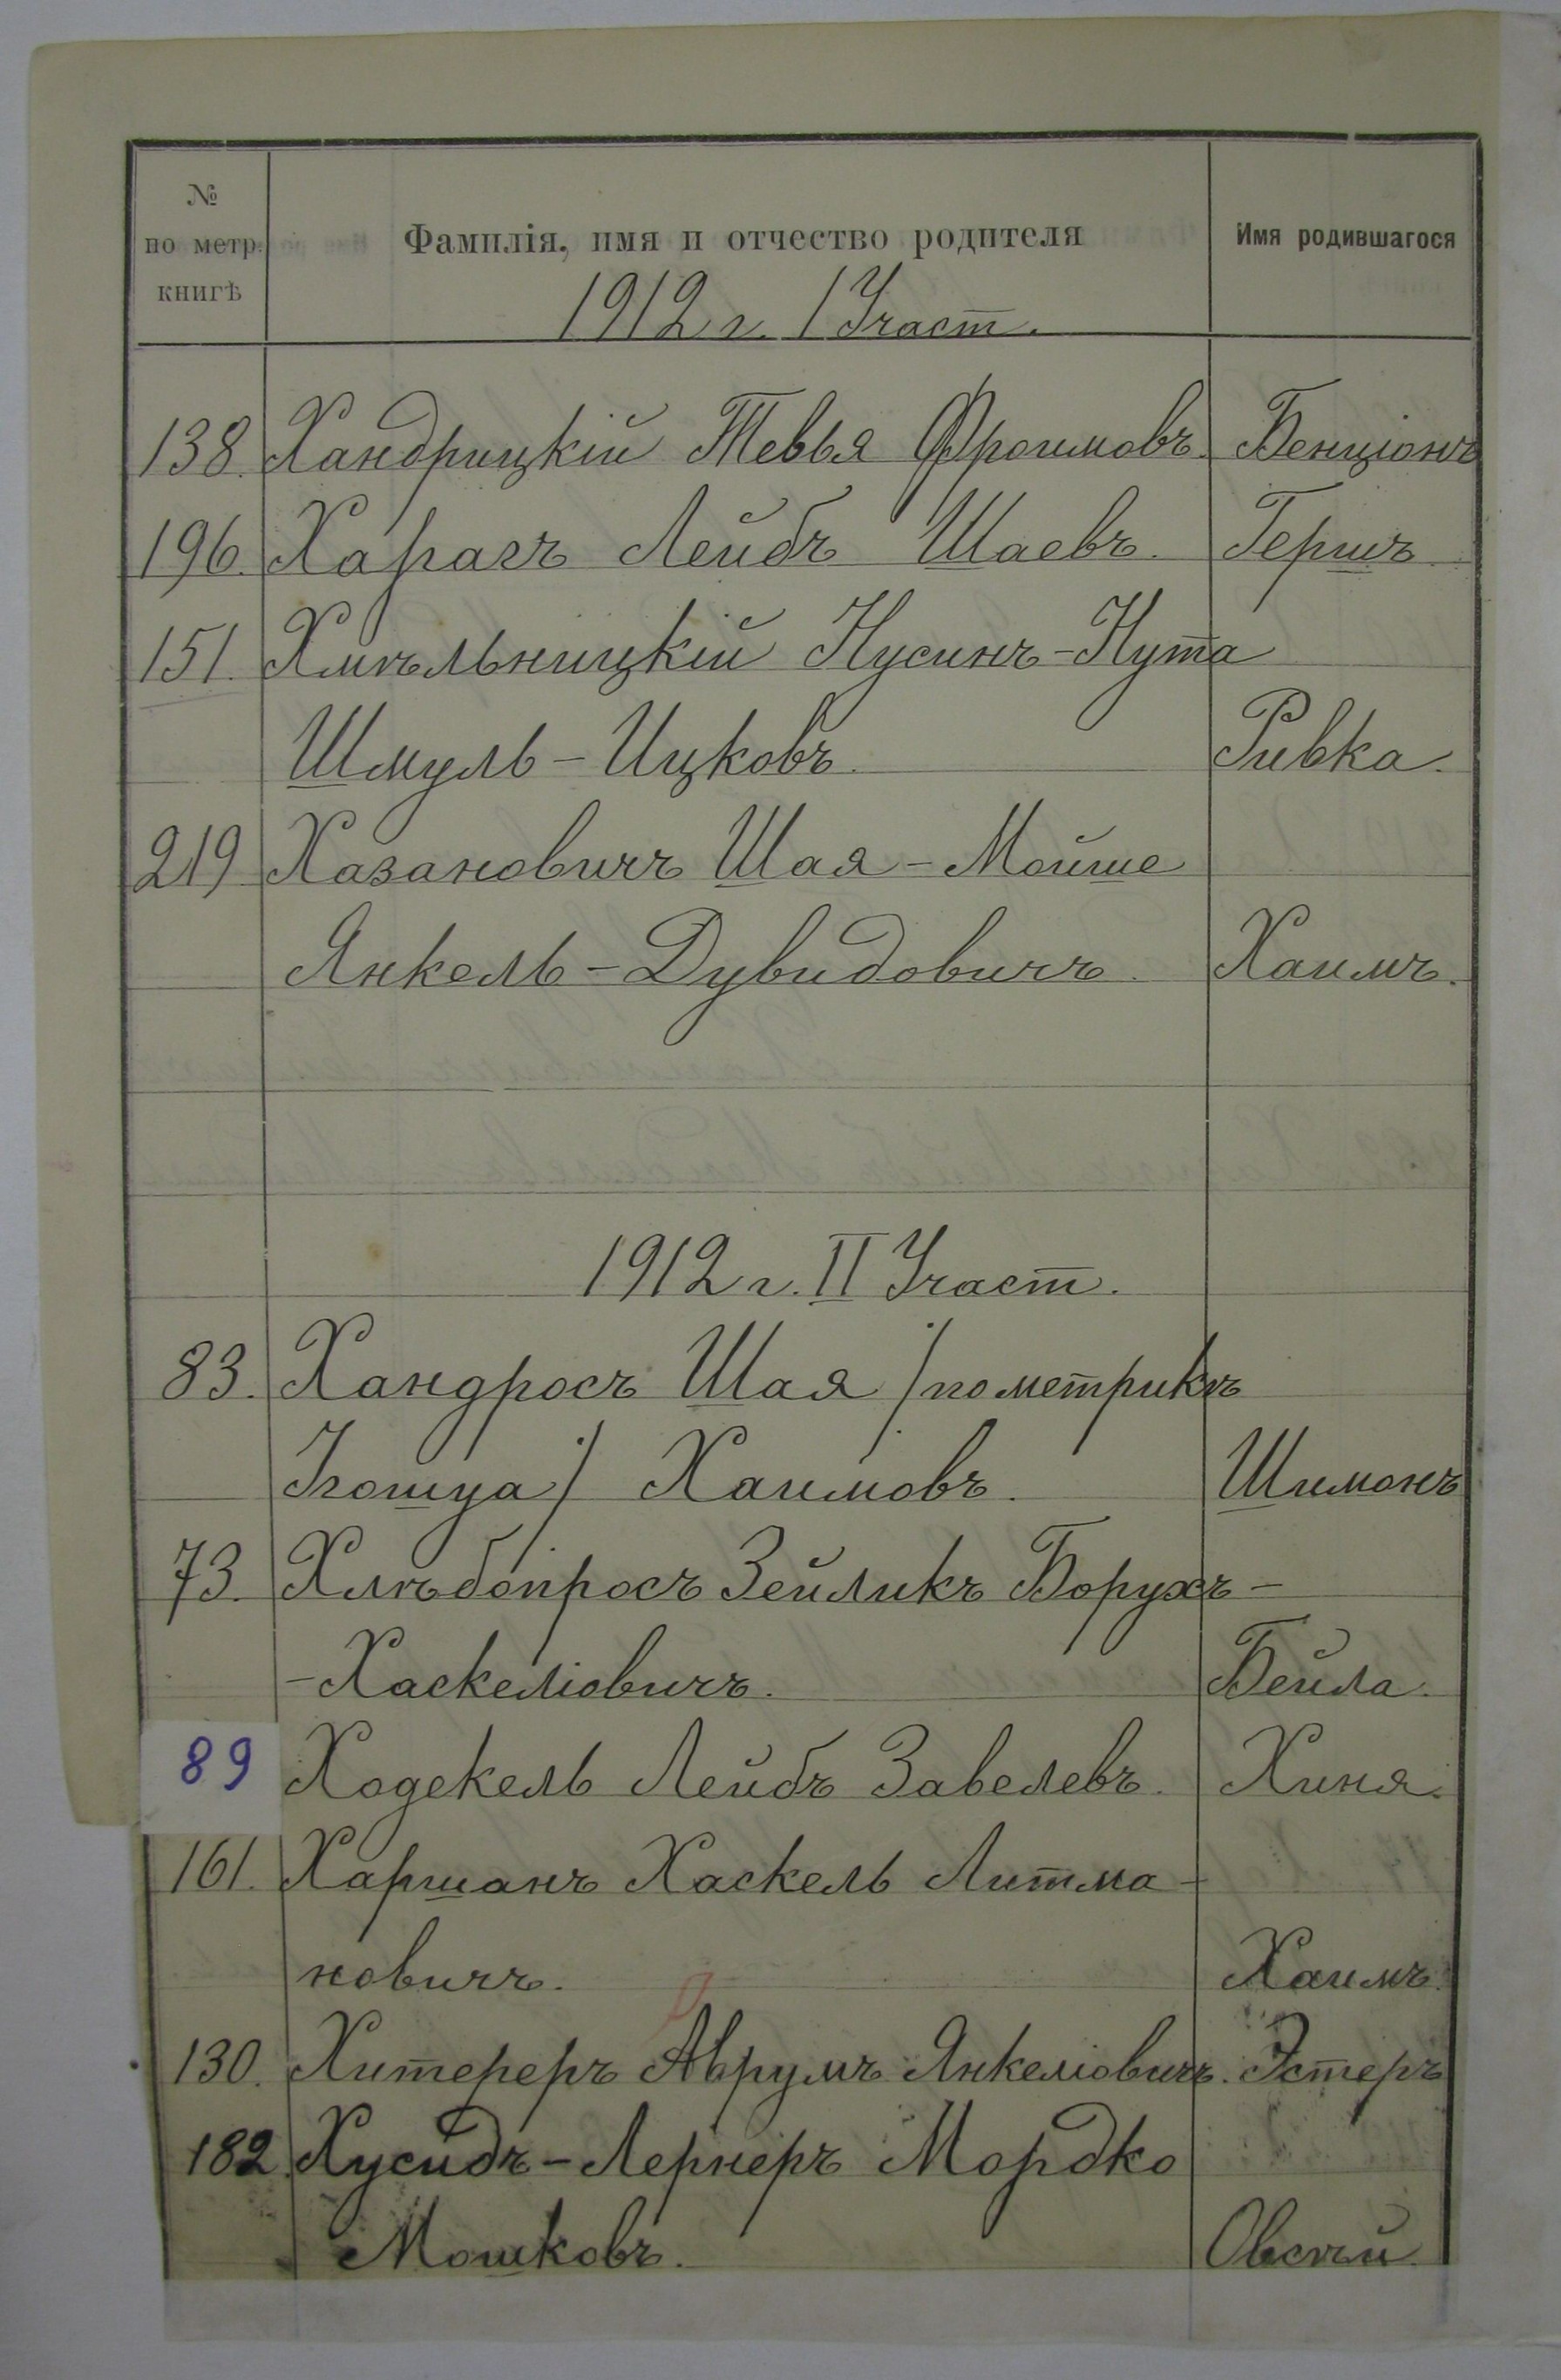 № по метр. книгѣ | Фамилія, имя и отчество родителя | Имя родившагося
1912 г. I Участ.
138. Хандрицкій Тевья Фроимовъ. Бенціонъ
196. Харагъ Лейбъ Шаевъ. Гершъ
151. Хмѣльницкій Нусинъ-Нута
Шмуль-Ицковъ. Ривка.
219 Хазановичъ Шая-Мойше
Янкель-Дувидовичъ. Хаимъ.
1912 г. II Участ.
83. Хандросъ Шая /по метрикѣ
Ігошуа/ Хаимовъ. Шимонъ
73. Хлѣбопросъ Зейликъ Борухъ-
-Хаскеліовичъ. Бейла.
89 Ходекель Лейбъ Завелевъ. Хиня.
161. Харшанъ Хаскель Литма-
новичъ. Хаимъ.
130. Хитереръ Аврумъ Янкеліовичъ. Эстеръ
182. Хусидъ-Лернеръ Мордко
Мошковъ. Овсѣй